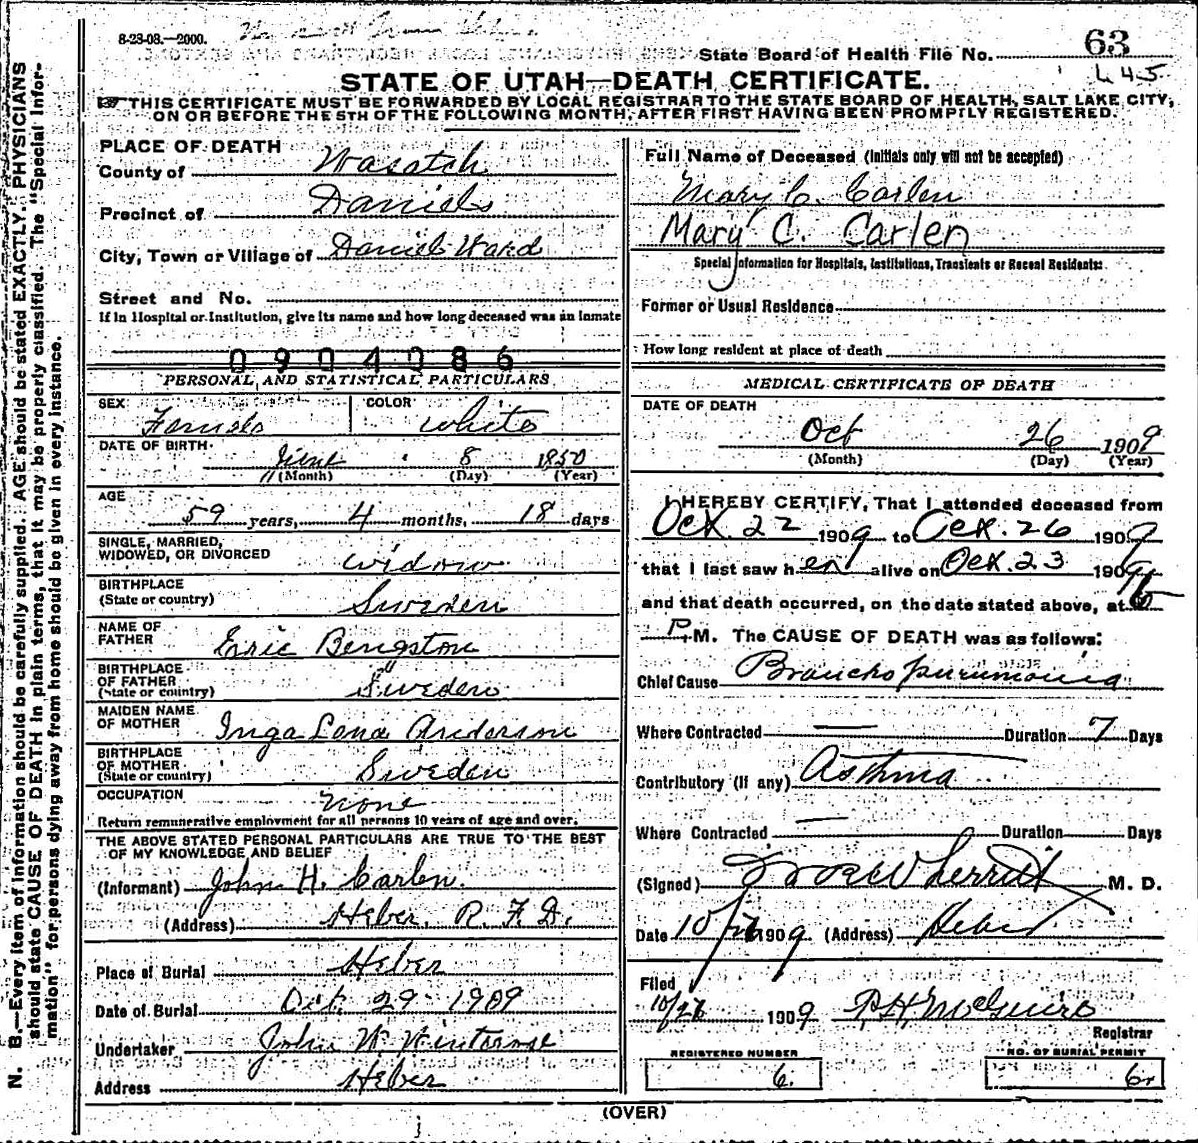 8-23-08.—2000.
State Board of Health File No. 63
STATE OF UTAH—DEATH CERTIFICATE.
☞ THIS CERTIFICATE MUST BE FORWARDED BY LOCAL REGISTRAR TO THE STATE BOARD OF HEALTH, SALT LAKE CITY,
ON OR BEFORE THE 5TH OF THE FOLLOWING MONTH, AFTER FIRST HAVING BEEN PROMPTLY REGISTERED.
N. B.—Every item of information should be carefully supplied. AGE should be stated EXACTLY. PHYSICIANS
should state CAUSE OF DEATH in plain terms, that it may be properly classified. The "Special Infor-
mation" for persons dying away from home should be given in every instance.
PLACE OF DEATH
County of Wasatch
Precinct of Daniels
City, Town or Village of Daniels Ward
Street and No.
If in Hospital or Institution, give its name and how long deceased was an inmate
0904086
PERSONAL AND STATISTICAL PARTICULARS
SEX Female COLOR white
DATE OF BIRTH June 8 1850
(Month) (Day) (Year)
AGE
59 years, 4 months, 18 days
SINGLE, MARRIED,
WIDOWED, OR DIVORCED widow
BIRTHPLACE
(State or country) Sweden
NAME OF
FATHER Eric Bengston
BIRTHPLACE
OF FATHER
(State or country) Sweden
MAIDEN NAME
OF MOTHER Inga Lena Anderson
BIRTHPLACE
OF MOTHER
(State or country) Sweden
OCCUPATION none
Return remunerative employment for all persons 10 years of age and over.
THE ABOVE STATED PERSONAL PARTICULARS ARE TRUE TO THE BEST
OF MY KNOWLEDGE AND BELIEF
(Informant) John H. Carlen
(Address) Heber, R. F. D.
Place of Burial Heber
Date of Burial Oct. 29 - 1909
Undertaker John W. Winterose
Address Heber
Full Name of Deceased (Initials only will not be accepted)
Mary C. Carlen
Mary C. Carlen
Special Information for Hospitals, Institutions, Transients or Recent Residents:
Former or Usual Residence
How long resident at place of death
MEDICAL CERTIFICATE OF DEATH
DATE OF DEATH
Oct 26 1909
(Month) (Day) (Year)
I HEREBY CERTIFY, That I attended deceased from
Oct. 22 1909 to Oct. 26 1909
that I last saw her alive on Oct. 23 1909
and that death occurred, on the date stated above, at
P. M. The CAUSE OF DEATH was as follows:
Chief Cause Broncho pneumonia
Where Contracted — Duration 7 Days
Contributory (if any) Asthma
Where Contracted — Duration Days
(Signed) M. D.
Date 10/27 1909 (Address) Heber
Filed
10/28 1909 P. H. McGuire
Registrar
REGISTERED NUMBER
6.
NO. OF BURIAL PERMIT
6
(OVER)